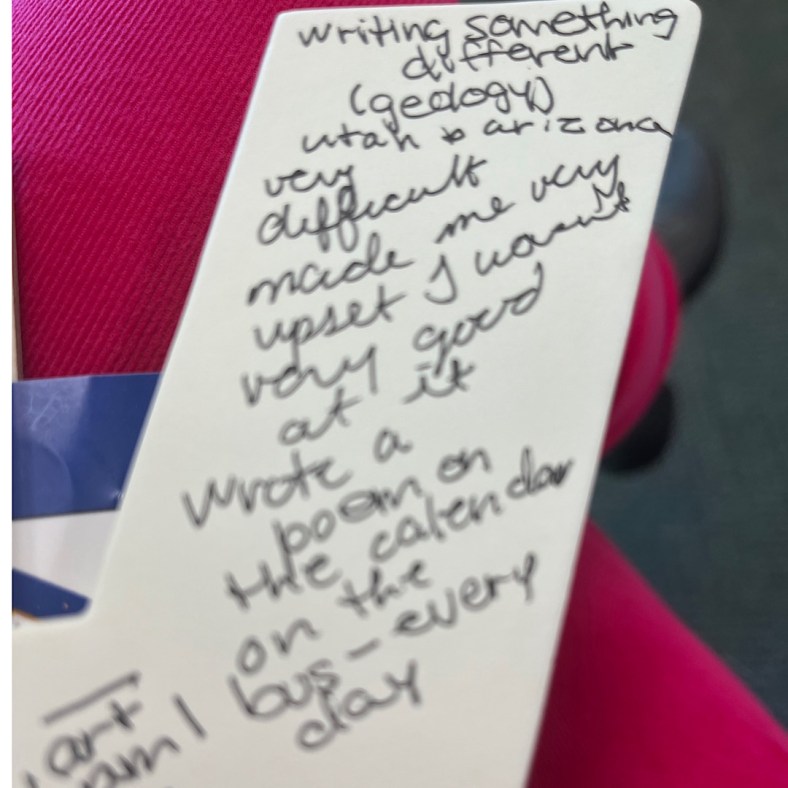 writing something
different
(geology)
utah & arizona
very
difficult
made me very
upset I wasn't
very good
at it
wrote a
poem on
the calendar
on the
bus - every
day
art